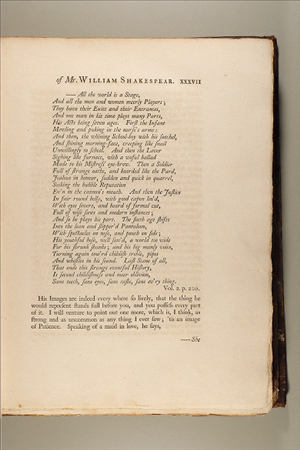 of Mr. WILLIAM SHAKESPEAR. XXXVII
—All the world is a Stage,
And all the men and women meerly Players;
They have their Exits and their Entrances,
And one man in his time plays many Parts,
His Acts being seven ages. First the Infant
Mewling and puking in the nurse's arms:
And then, the whining School-boy with his satchel,
And shining morning-face, creeping like snail
Unwillingly to school. And then the Lover
Sighing like furnace, with a woful ballad
Made to his Mistress' eye-brow. Then a Soldier
Full of strange oaths, and bearded like the Pard,
Jealous in honour, sudden and quick in quarrel,
Seeking the bubble Reputation
Ev'n in the cannon's mouth. And then the Justice
In fair round belly, with good capon lin'd,
With eyes severe, and beard of formal cut,
Full of wise saws and modern instances;
And so he plays his part. The sixth age shifts
Into the lean and slipper'd Pantaloon,
With spectacles on nose, and pouch on side;
His youthful hose, well sav'd, a world too wide
For his shrunk shank; and his big manly voice,
Turning again tow'rd childish treble, pipes
And whistles in his sound. Last Scene of all,
That ends this strange eventful History,
Is second childishness and meer oblivion,
Sans teeth, sans eyes, sans taste, sans ev'ry thing.
Vol. 2. p. 220.
His Images are indeed every where so lively, that the thing he
would represent stands full before you, and you possess every part
of it. I will venture to point out one more, which is, I think, as
strong and as uncommon as any thing I ever saw; 'tis an image
of Patience. Speaking of a maid in love, he says,
—She